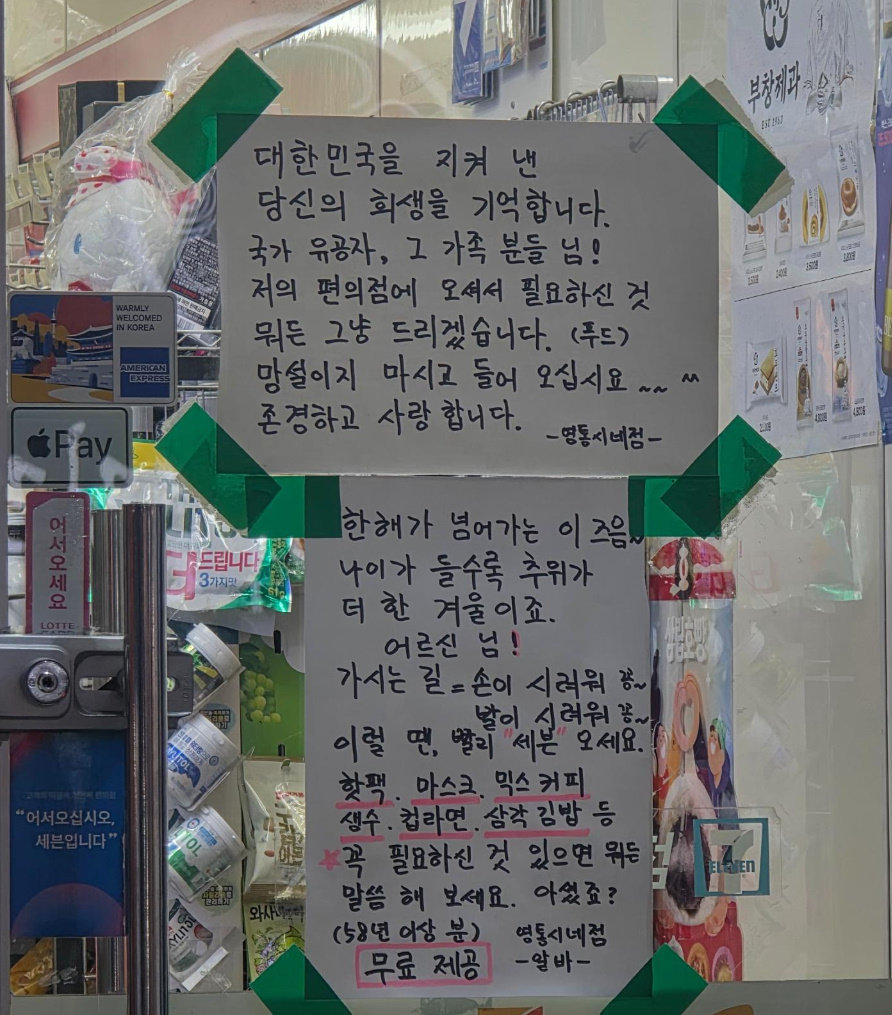 대한민국을 지켜 낸
당신의 희생을 기억합니다.
국가 유공자, 그 가족 분들 님!
저의 편의점에 오셔서 필요하신 것
뭐든 그냥 드리겠습니다. (푸드)
망설이지 마시고 들어 오십시요 ~~ ^^
존경하고 사랑합니다.
-영통시네점-
한해가 넘어가는 이 즈음~
나이가 들수록 추위가
더 한 겨울이죠.
어르신 님!
가시는 길 = 손이 시려워 꽁~
발이 시려워 꽁~
이럴 땐, 빨리 "세븐" 오세요.
핫팩. 마스크. 믹스 커피
생수. 컵라면. 삼각김밥 등
꼭 필요하신 것 있으면 뭐든
말씀 해 보세요. 아셨죠?
(58년 이상 분) 영통시네점
무료 제공 -알바-
부창제과
EST 1963
WARMLY
WELCOMED
IN KOREA
AMERICAN
EXPRESS
Pay
어서오세요
LOTTE
드립니다
3가지맛
"어서오십시오,
세븐입니다"
와사
점
7
ELEVEN